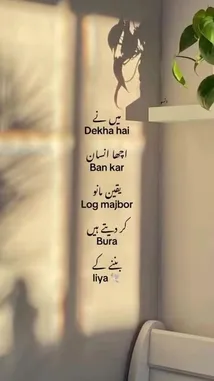 میں نے
Dekha hai
اچھا انسان
Ban kar
یقین مانو
Log majbor
کر دیتے ہیں
Bura
بننے کے
liya 🕊️